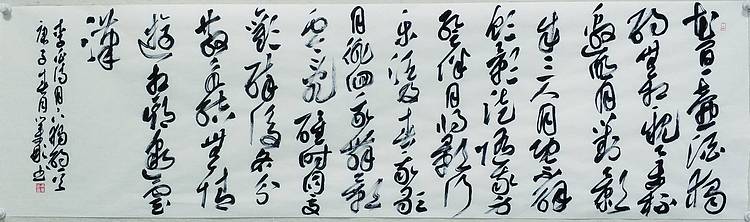 花间一壶酒独
酌無相親举杯
邀明月對影
成三人月既不解
飲影徒随我身
暂伴月将影行
乐须及春我歌
月徘徊我舞影
零亂醒时同交
歡醉後各分
散永结無情
遊相期邈雲
漢
李白诗月下独酌
庚子春月